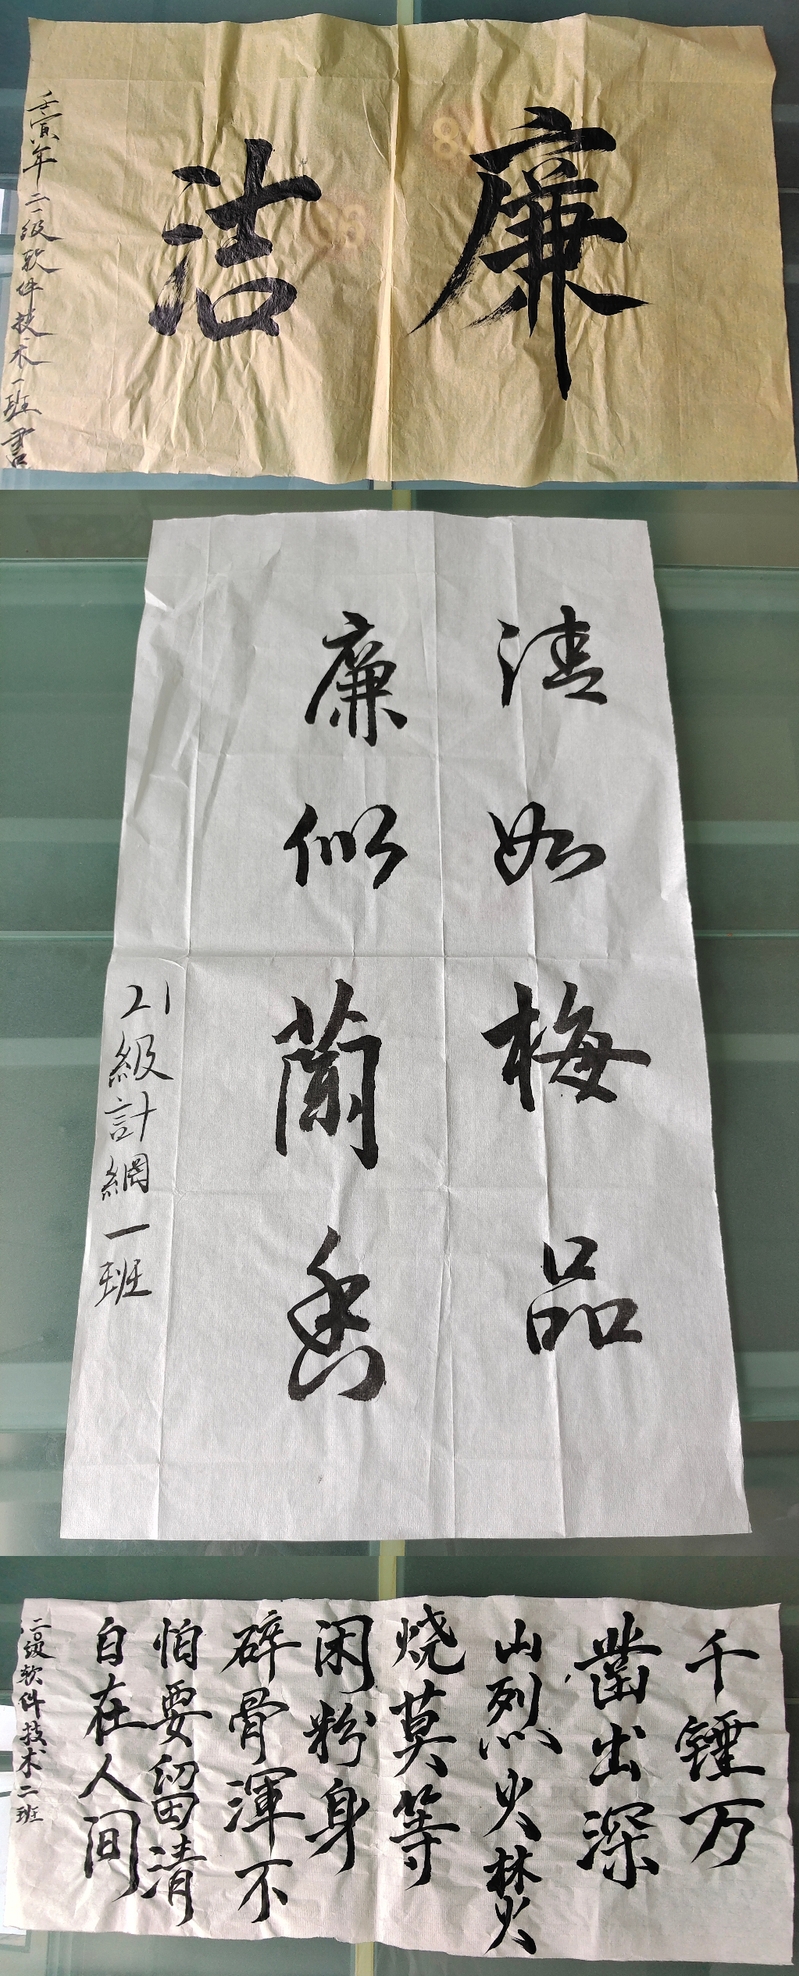 廉洁
壬寅年二一级软件技术一班書
清如梅品
廉似蘭香
21級計網一班
千锤万
凿出深
山烈火焚
烧莫等
闲粉身
碎骨渾不
怕要留清
自在人间
二〇级软件技术二班